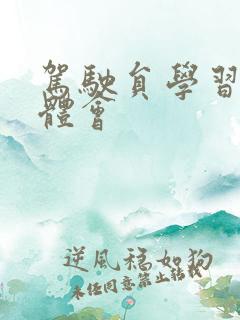 駕駛員學習
體會
逆風稱如狗
未經同意禁止轉載